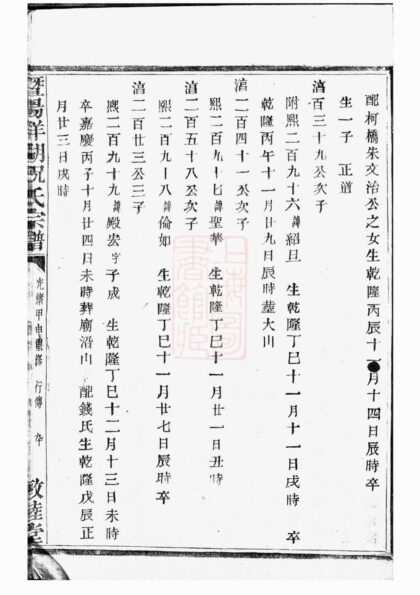 配柯橋朱文治公之女生乾隆丙辰十一月十四日辰時卒
生一子 正道
濇百三十九公次子
附熙二百九十六諱紹旦 生乾隆丁巳十一月十一日戌時 卒
乾隆丙午十一月廿九日辰時塟大山
濇二百四十一公次子
熙二百九十七諱聖華 生乾隆丁巳十一月廿一日丑時
濇二百五十八公次子
熙二百九十八諱倫如 生乾隆丁巳十一月廿七日辰時卒
濇二百廿三公三子
熙二百九十九諱殿宏字子成 生乾隆丁巳十二月十三日未時
卒嘉慶丙子十月廿四日未時葬廟沿山 配錢氏生乾隆戊辰正
月廿三日戌時
暨陽祥湖祝氏宗譜
光緒甲申重修 行傳
敦睦堂
上海圖書館藏